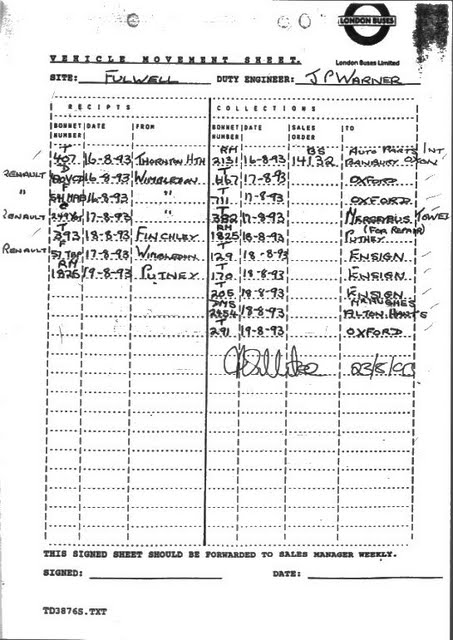 LONDON BUSES
VEHICLE MOVEMENT SHEET.
London Buses Limited
SITE: FULWELL DUTY ENGINEER: J P WARNER
RECEIPTS COLLECTIONS
BONNET NUMBER DATE FROM BONNET NUMBER DATE SALES ORDER TO
T 407 16-8-93 THORNTON HTH RM 2131 16-8-93 BS 14132 AUTO PARTS INT BANBURY OXON
RENAULT 16-8-93 WIMBLEDON T 667 17-8-93 OXFORD
" 16-8-93 " T 711 17-8-93 OXFORD
RENAULT 17-8-93 " T 382 17-8-93 (FOR REPAIR)
T 293 18-8-93 FINCHLEY RM 1825 18-8-93 PUTNEY
RENAULT 17-8-93 WIMBLEDON T 129 18-8-93 ENSIGN
RM 1825 19-8-93 PUTNEY T 170 18-8-93 ENSIGN
T 205 18-8-93 ENSIGN
2454 18-8-93 ALTON HANTS
T 291 19-8-93 OXFORD
THIS SIGNED SHEET SHOULD BE FORWARDED TO SALES MANAGER WEEKLY.
SIGNED: DATE:
TD3876S.TXT